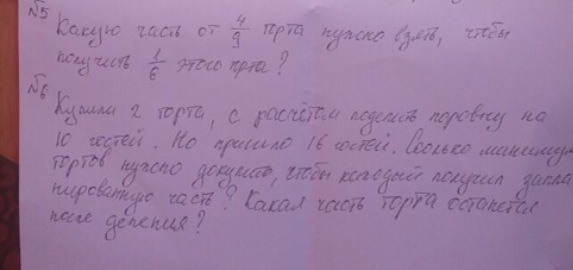 №5
Какую часть от 4/9 торта нужно взять, чтобы
получить 1/6 этого торта?
№6
Купили 2 торта, с расчётом поделить поровну на
10 гостей. Но пришло 16 гостей. Сколько минимум
тортов нужно докупить, чтобы каждый получил запла
нированную часть? Какая часть торта останется
после деления?